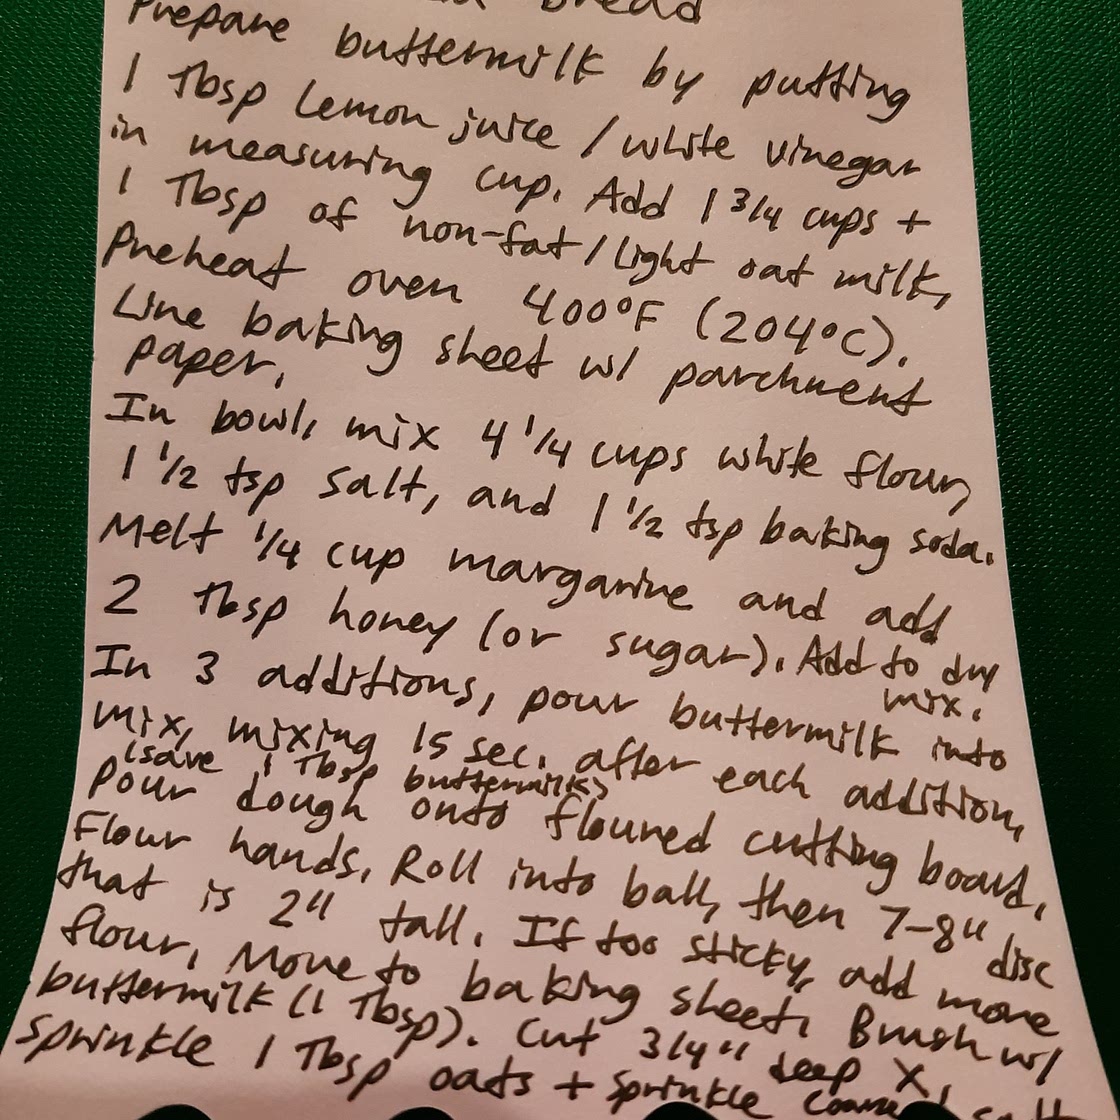 Bread
Prepare buttermilk by putting
1 Tbsp Lemon juice / white vinegar
in measuring cup. Add 1 3/4 cups +
1 Tbsp of non-fat / light oat milk.
Preheat oven 400°F (204°C).
Line baking sheet w/ parchment
paper.
In bowl, mix 4 1/4 cups white flour,
1 1/2 tsp salt, and 1 1/2 tsp baking soda.
Melt 1/4 cup margarine and add
2 Tbsp honey (or sugar). Add to dry
mix.
In 3 additions, pour buttermilk into
mix, mixing 15 sec. after each addition.
(save 1 Tbsp buttermilk)
Pour dough onto floured cutting board.
Flour hands. Roll into ball, then 7-8" disc
that is 2" tall. If too sticky, add more
flour. Move to baking sheet. Brush w/
buttermilk (1 Tbsp). Cut 3/4" deep X.
Sprinkle 1 Tbsp oats + sprinkle coarse salt